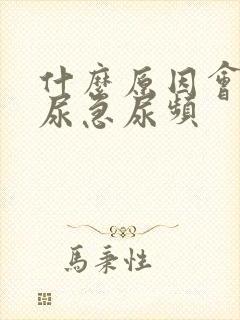 什麼原因會
尿急尿頻
馬秉性